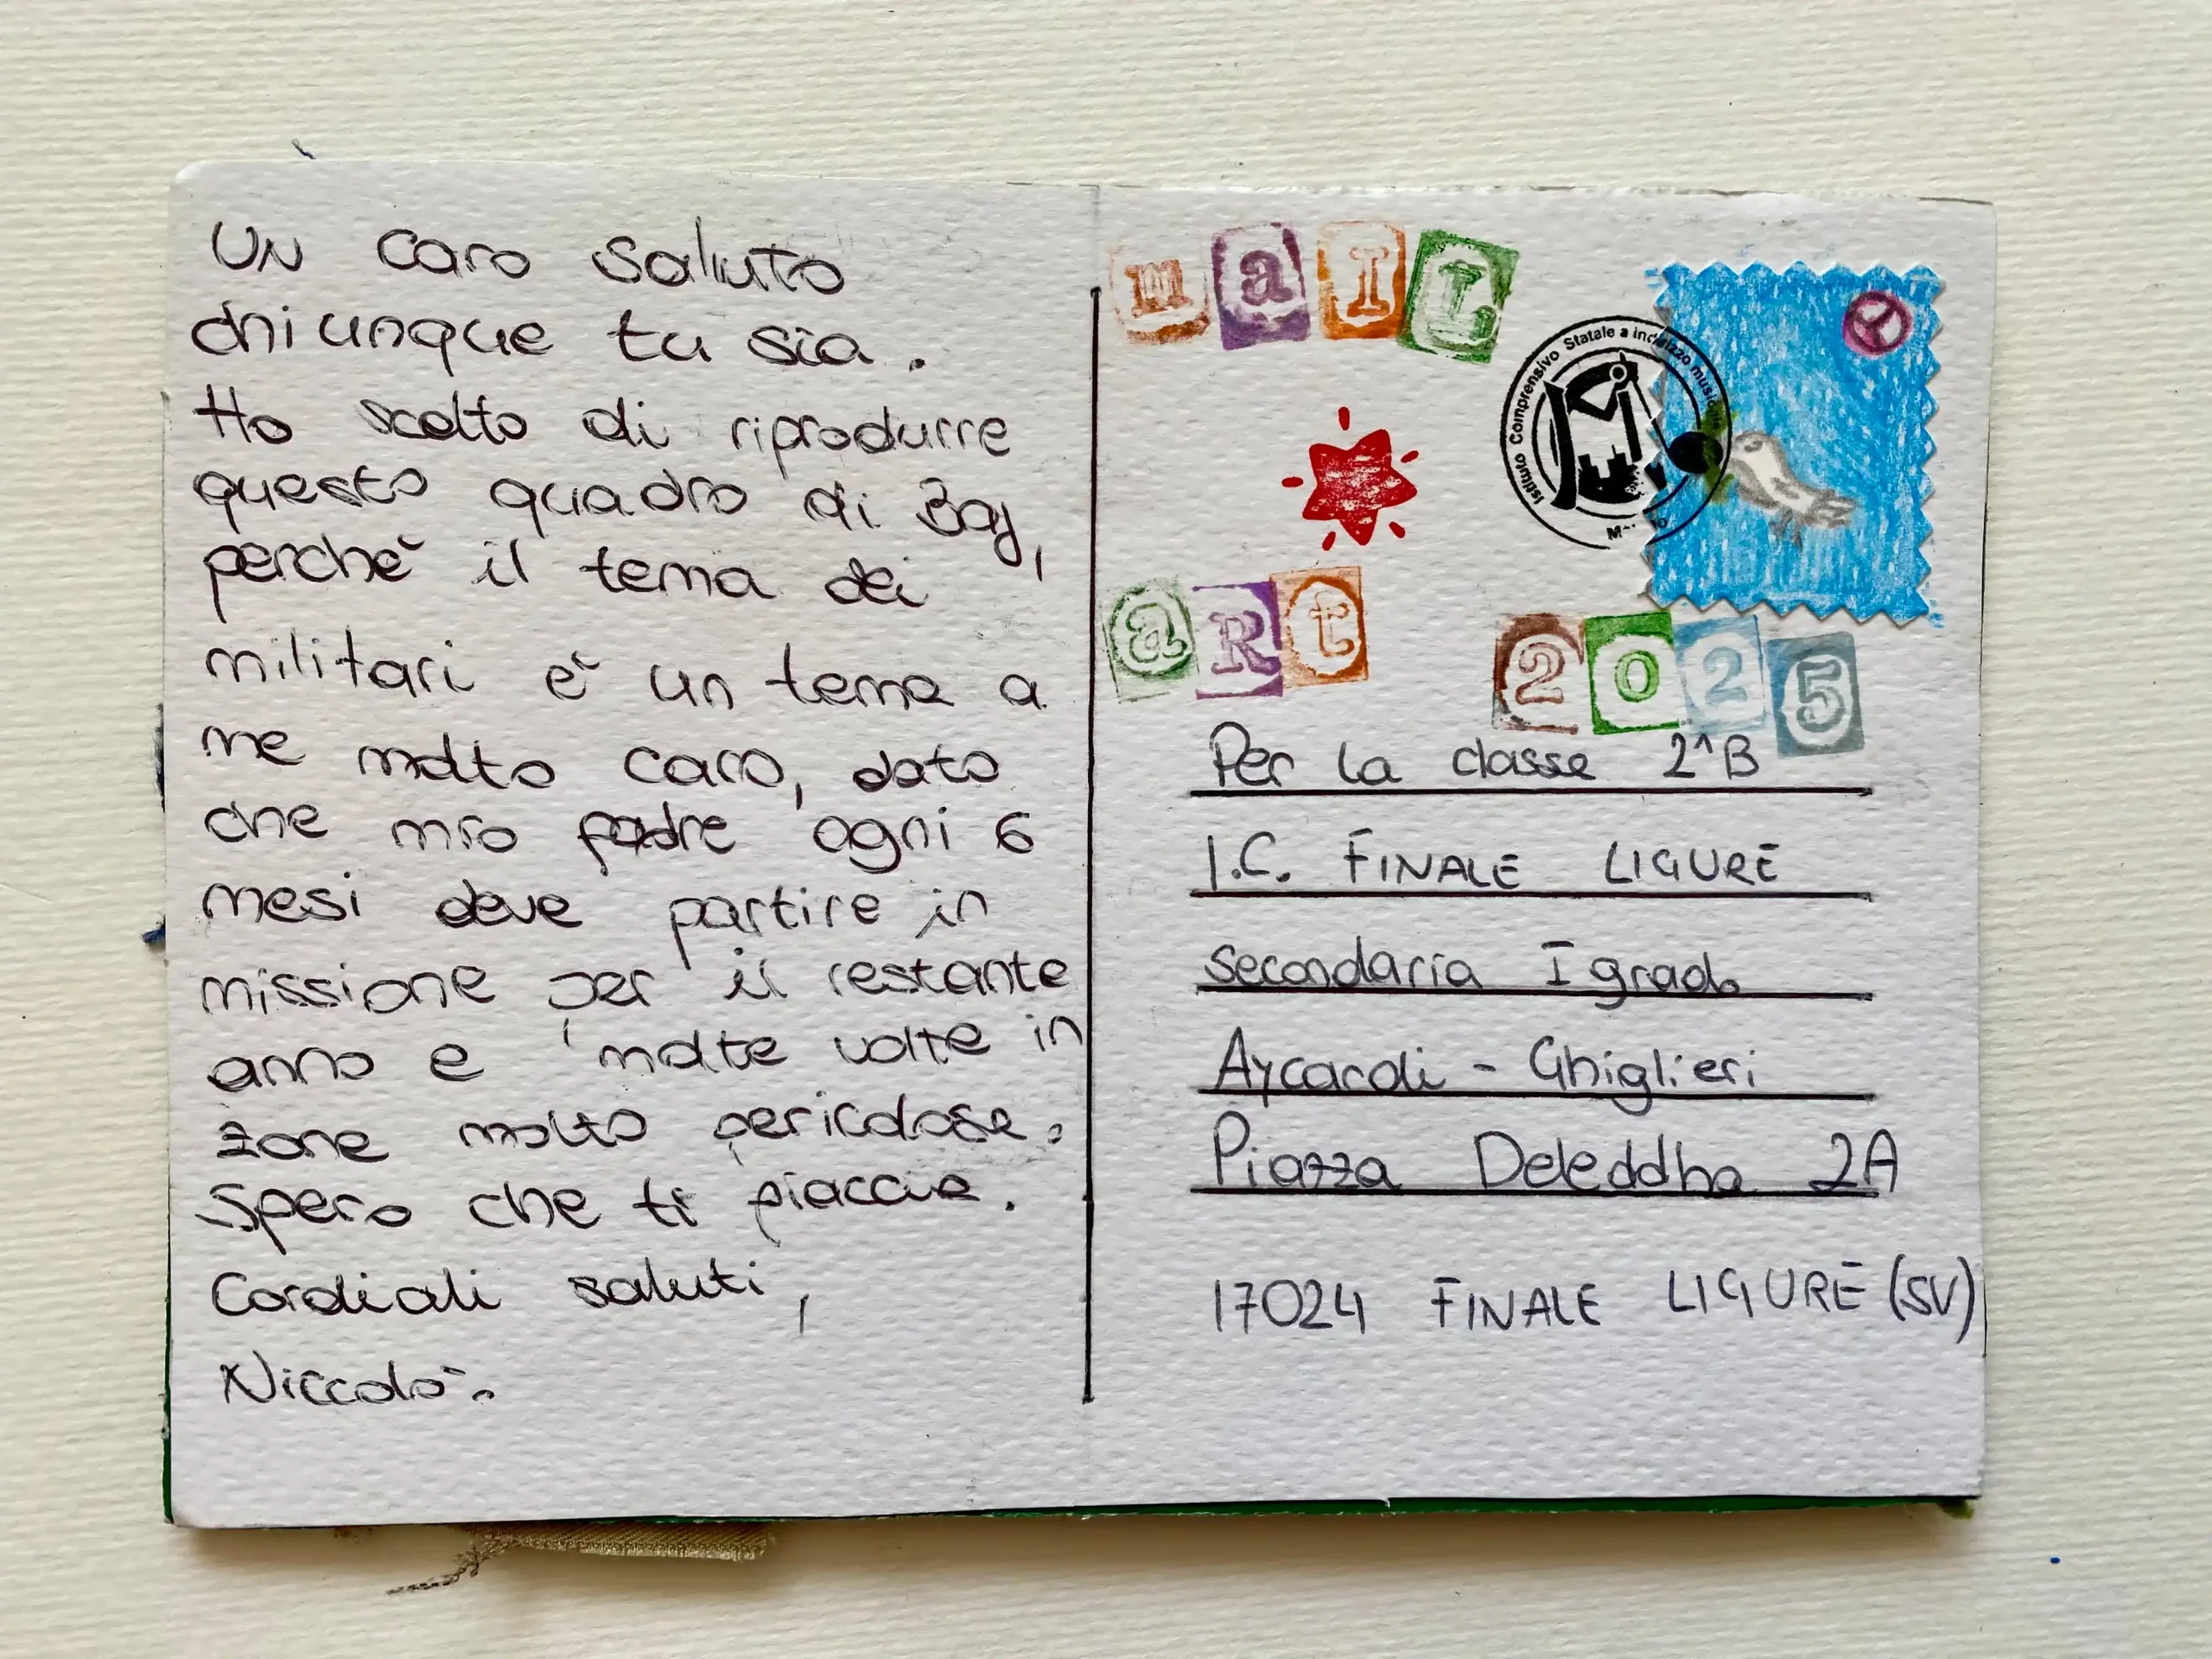 UN caro saluto
chiunque tu sia.
Ho scelto di riprodurre
questo quadro di Baj,
perchè il tema dei
militari è un tema a
me molto caro, dato
che mio padre ogni 6
mesi deve partire in
missione per il restante
anno e molte volte in
zone molto pericolose.
Spero che ti piaccia.
Cordiali saluti,
Niccolò.
maIL
aRt
2025
Istituto Comprensivo Statale a indirizzo music
Per la classe 2^B
I.C. FINALE LIGURE
secondaria I grado
Aycardi - Ghiglieri
Piazza Deleddha 2A
17024 FINALE LIGURE (SV)